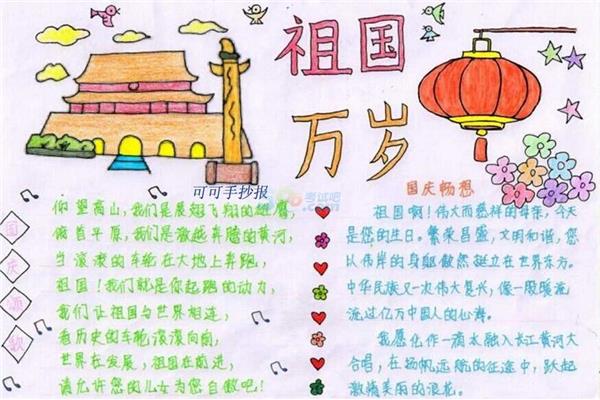 祖国
万岁
可可手抄报
考试吧
国庆畅想
国庆颂歌
仰望高山，我们是展翅飞翔的雄鹰，
俯首平原，我们是激越奔腾的黄河，
当滚滚的车轮在大地上奔跑，
祖国！我们就是你起跑的动力，
我们让祖国与世界相连，
看历史的车轮滚滚向前，
世界在发展，祖国在前进，
请允许您的儿女为您自傲吧！
祖国啊！伟大而慈祥的母亲，今天
是您的生日。繁荣昌盛，文明和谐，您
以伟岸的身躯傲然挺立在世界东方。
中华民族又一次伟大复兴，像一股暖流
流过亿万中国人的心海。
我愿化作一滴水融入长江黄河大
合唱，在扬帆远航的征途中，跃起
激情美丽的浪花。